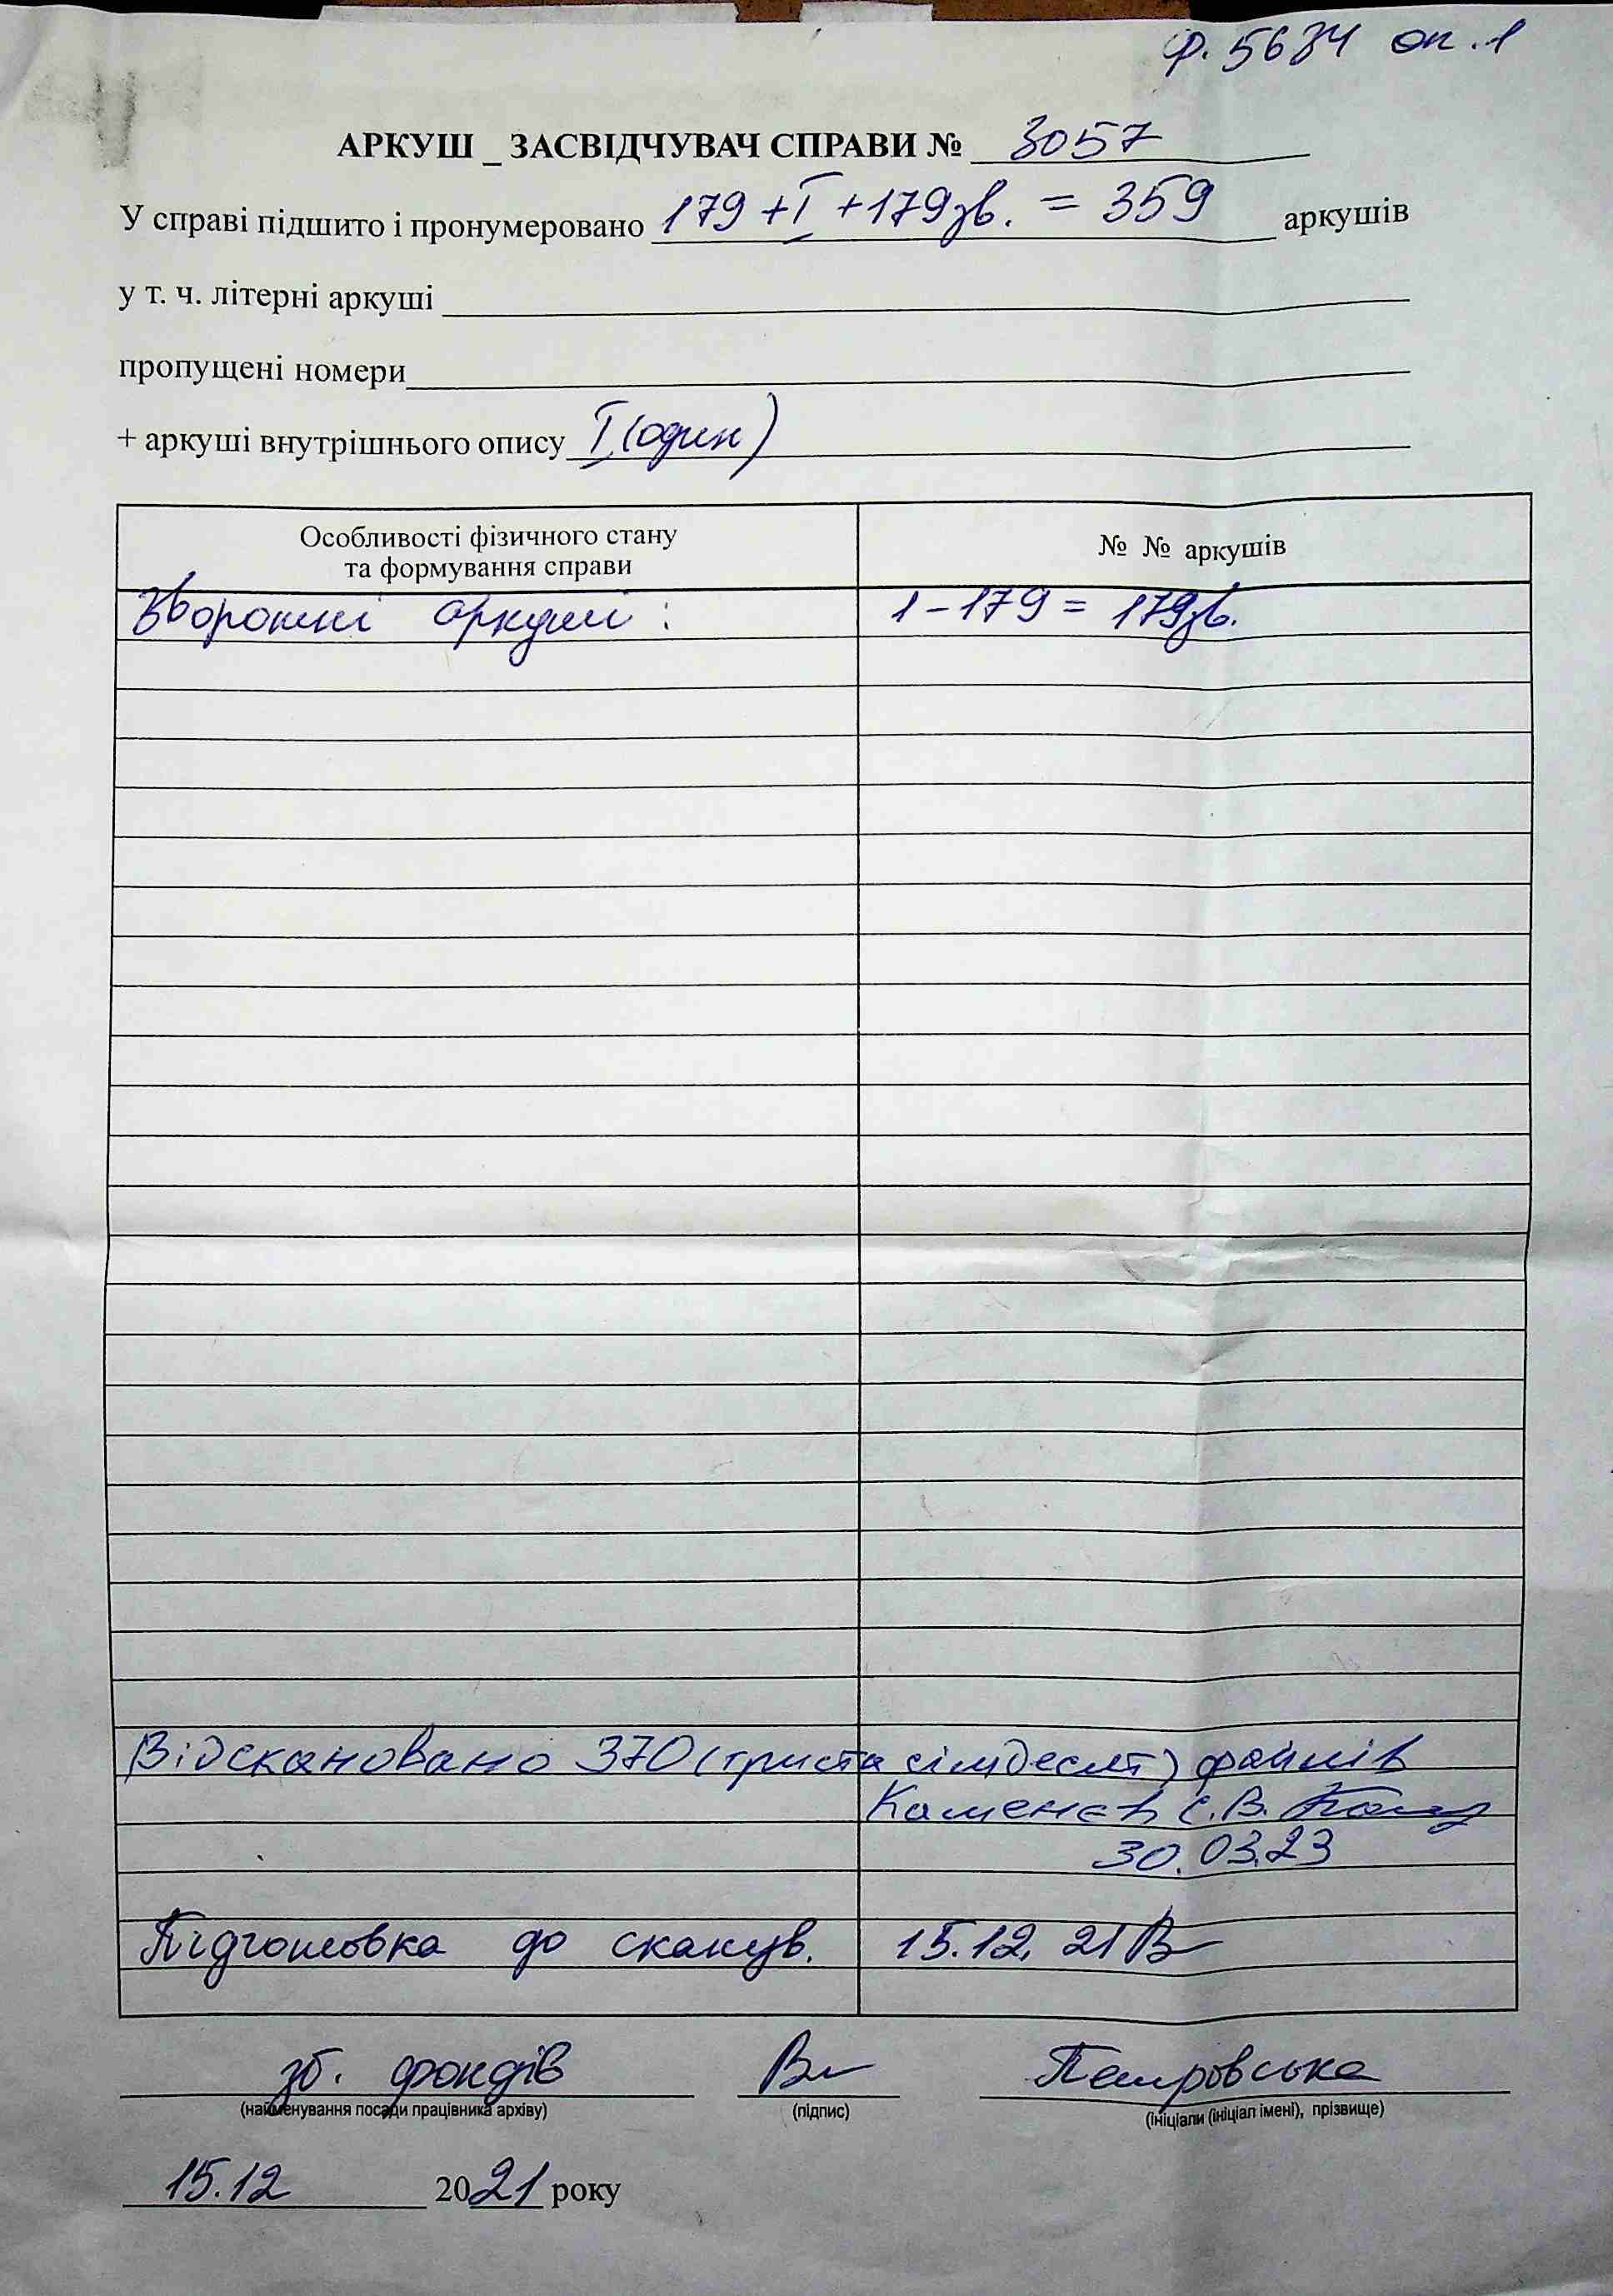 ф. 5684 оп. 1
АРКУШ _ ЗАСВІДЧУВАЧ СПРАВИ № 3057
У справі підшито і пронумеровано 179 + I + 179 зв. = 359 аркушів
у т. ч. літерні аркуші
пропущені номери
+ аркуші внутрішнього опису I (один)
Особливості фізичного стану
та формування справи
№ № аркушів
Зворотні аркуші : 1 – 179 = 179 зв.
Відскановано 370 (триста сімдесят) файлів
Каменєв С.В.
30.03.23
Підготовка до сканув. 15.12.21
зб. фондів Петровська
(найменування посади працівника архіву) (підпис) (ініціали (ініціал імені), прізвище)
15.12 2021 року